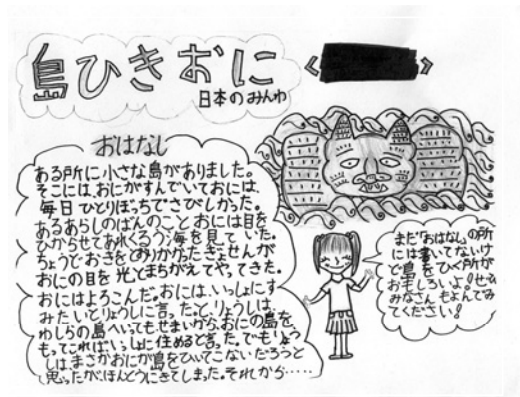 島ひきおに
日本のみんわ
おはなし
ある所に小さな島がありました。
そこには、おにがすんでいておには、
毎日ひとりぼっちでさびしかった。
あるあらしのばんのこと おには目を
ひからせてあれくるう海を見ていた。
ちょうどおきをとおりかかったぎょせんが
おにの目を光とまちがえてやってきた。
おにはよろこんだ。おには、いっしょにす
みたいとりょうしに言った。と、りょうしは、
わしらの島へいってもせまいから、おにの島を、
もってこればいっしょに住めると言った。でもりょう
しは、まさかおにが島をひいてこないだろうと
思ったがほんとうにきてしまった。それから・・・・・
まだ「おはなし」の所
には書いてないけ
ど島をひく所が
おもしろいよ!ぜひ
みなさんもよんでみ
てください!